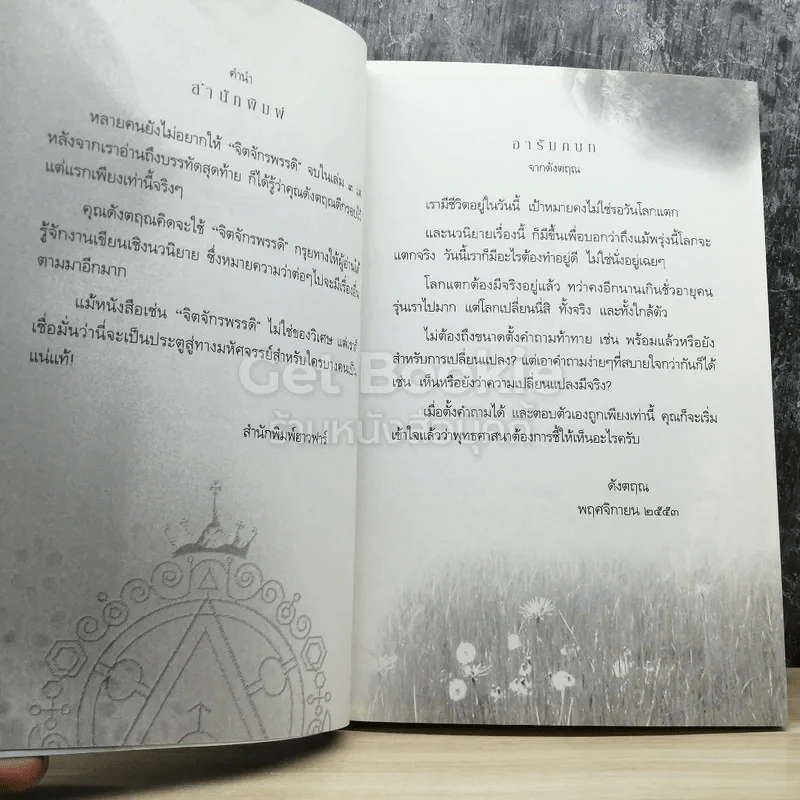 คำนำ
สำนักพิมพ์
หลายคนยังไม่อยากให้ “จิตจักรพรรดิ” จบในเล่ม ๓
หลังจากเราอ่านถึงบรรทัดสุดท้าย ก็ได้รู้ว่าคุณดังตฤณตีกรอบไว้
แต่แรกเพียงเท่านี้จริงๆ
คุณดังตฤณคิดจะใช้ “จิตจักรพรรดิ” กรุยทางให้ผู้อ่านได้
รู้จักงานเขียนเชิงนวนิยาย ซึ่งหมายความว่าต่อๆไปจะมีเรื่องอื่น
ตามมาอีกมาก
แม้หนังสือเช่น “จิตจักรพรรดิ” ไม่ใช่ของวิเศษ แต่เราก็
เชื่อมั่นว่านี่จะเป็นประตูสู่ทางมหัศจรรย์สำหรับใครบางคนเป็น
แน่แท้!
สำนักพิมพ์ฮาวฟาร์
อารัมภบท
จากดังตฤณ
เรามีชีวิตอยู่ในวันนี้ เป้าหมายคงไม่ใช่รอวันโลกแตก
และนวนิยายเรื่องนี้ ก็มีขึ้นเพื่อบอกว่าถึงแม้พรุ่งนี้โลกจะ
แตกจริง วันนี้เราก็มีอะไรต้องทำอยู่ดี ไม่ใช่นั่งอยู่เฉยๆ
โลกแตกต้องมีจริงอยู่แล้ว ทว่าคงอีกนานเกินชั่วอายุคน
รุ่นเราไปมาก แต่โลกเปลี่ยนนี่สิ ทั้งจริง และทั้งใกล้ตัว
ไม่ต้องถึงขนาดตั้งคำถามท้าทาย เช่น พร้อมแล้วหรือยัง
สำหรับการเปลี่ยนแปลง? แต่เอาคำถามง่ายๆที่สบายใจกว่ากันก็ได้
เช่น เห็นหรือยังว่าความเปลี่ยนแปลงมีจริง?
เมื่อตั้งคำถามได้ และตอบตัวเองถูกเพียงเท่านี้ คุณก็จะเริ่ม
เข้าใจแล้วว่าพุทธศาสนาต้องการชี้ให้เห็นอะไรครับ
ดังตฤณ
พฤศจิกายน ๒๕๕๓
Get Bookie
ร้านหนังสือบุคกี้